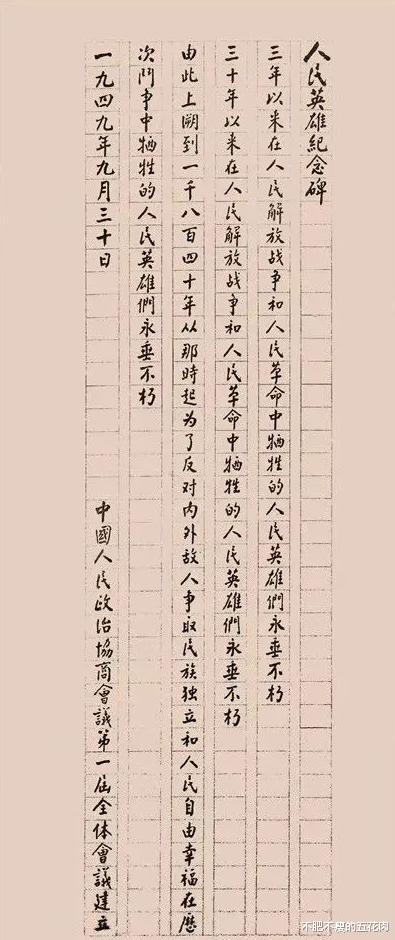 人民英雄紀念碑
三年以来在人民解放战争和人民革命中牺牲的人民英雄們永垂不朽
三十年以来在人民解放战争和人民革命中牺牲的人民英雄們永垂不朽
由此上溯到一千八百四十年从那時起为了反对内外敌人争取民族独立和人民自由幸福在歷
次鬥争中牺牲的人民英雄們永垂不朽
一九四九年九月三十日
中國人民政治協商會議第一屆全体會議建立
不肥不瘦的五花肉